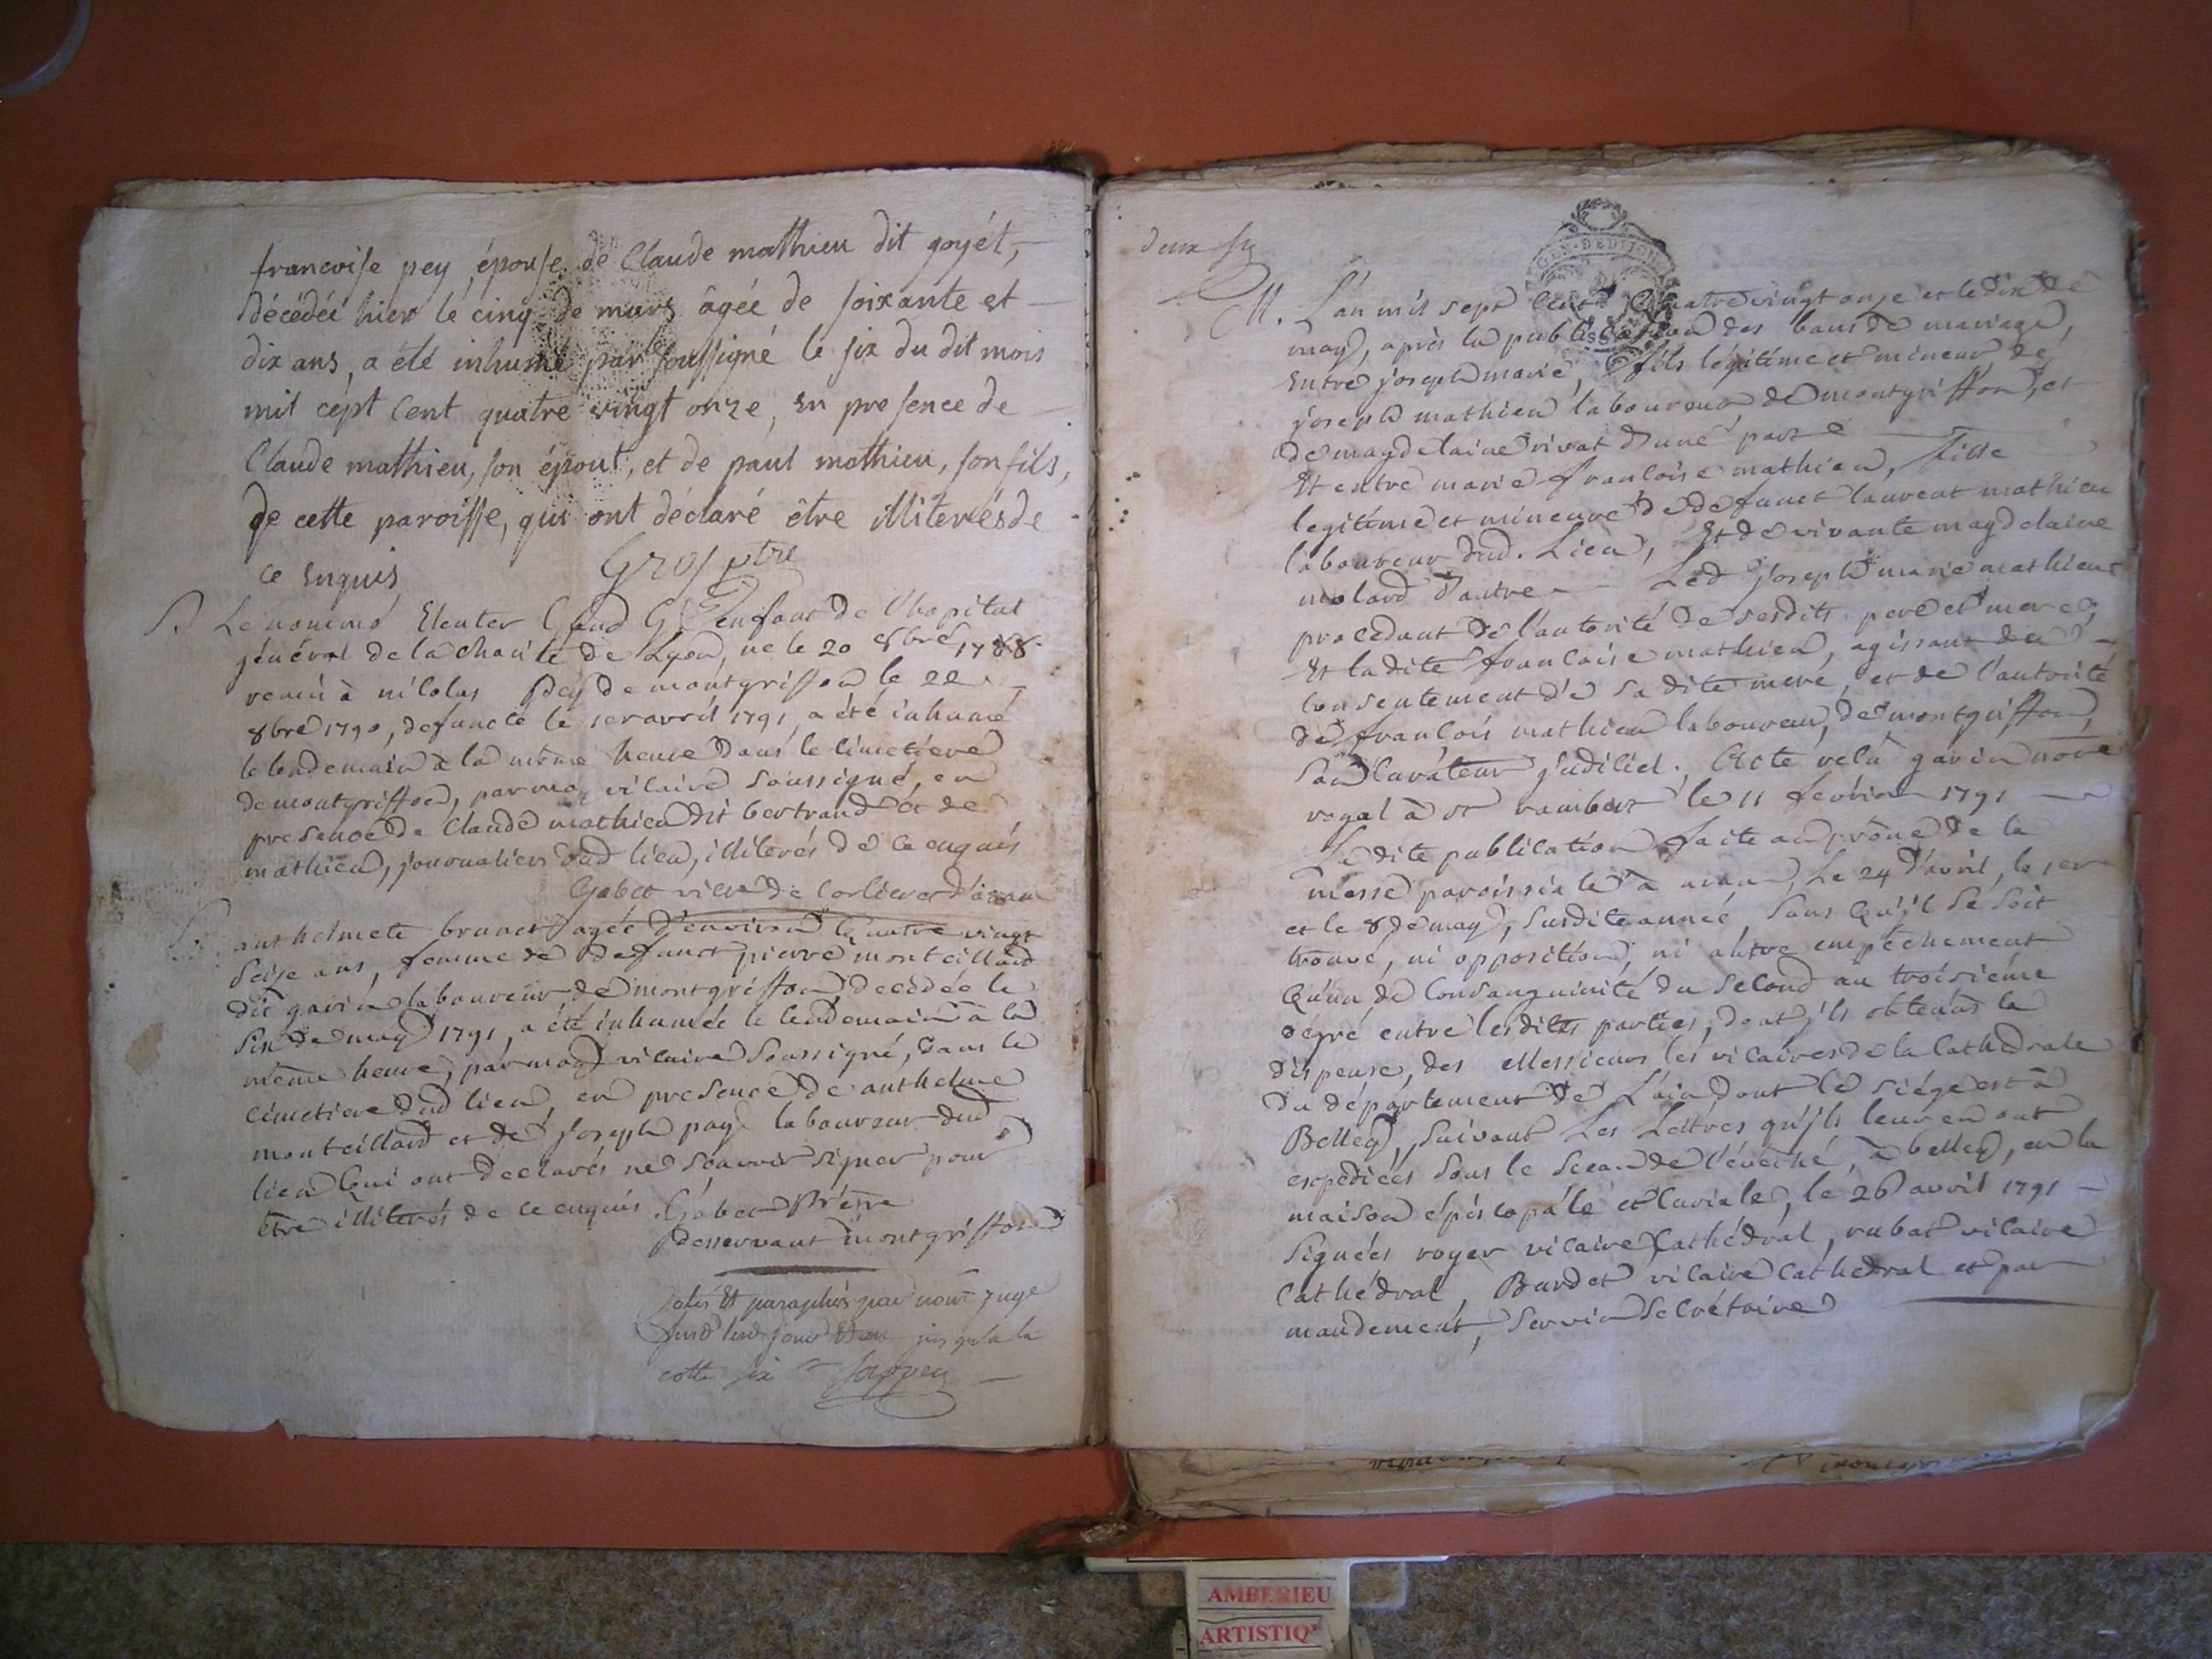 francoise pey, épouse de Claude mathieu dit goyét,
décédée hier le cinq de mars âgée de soixante et
dix ans, a été inhumé par soussigné le six du dit mois
mil cépt cent quatre vingt onze, en presence de
Claude mathieu, son épout, et de paul mathieu, son fils,
de cette paroisse, qui ont déclaré être illiterés de
ce enquis
Gros ptre
S. Le nommé Eleuter enfant de l'hopital
général de la charité de Lyon, né le 20 8bre 1788
remis à nicolas pey de montgriffon le 22
8bre 1790, defuncté le 1er avril 1791, a été inhumé
le lendemain à la même heure dans le cimetiere
de montgriffon, par moy vicaire soussigné, en
presence de Claude mathieu dit bertrand et de
mathieu, journaliers dud lieu, illiterés de ce enquis
Gabet vicre de Corlier et d'aranc
S. anthelmete brunet agée d'environ quatre vingt
seize ans, femme de defunct pierre monteilland
dit gavin laboureur de montgriffon decedée le
six de may 1791, a été inhumée le lendemain à la
même heure, par moy vicaire soussigné, dans le
cimetiere dud lieu, en presence de anthelme
monteilland et de joseph pay laboureur dud
lieu qui ont declarés ne sçavoir signer pour
être illiterés de ce enquis. Gabet Prêtre
desservant montgriffon
Cotés et paraphés par nous juge
susd lesd jour et an jusqu'a la
cotte six
deux
M. L'an mil sept cent quatre vingt onze et le dix de
may, après la publication des bans de mariage,
Entre joseph marie, fils légitime et mineur de
joseph mathieu laboureur de montgriffon, et
de magdelaine vivat d'une part
Et entre marie françoise mathieu, fille
legitime et mineure de defunct laurent mathieu
laboureur dud. Lieu, Et de vivante magdelaine
molard d'autre Led joseph marie mathieu
procédant de l'autorité de sesdits pere et mere,
Et ladite françoise mathieu, agissant du
consentement de sa dite mere, et de l'autorité
de françois mathieu laboureur, de montgriffon,
son curateur judiciel. Acte reçu gavin nore
royal à st rambert le 11 fevrier 1791
Ledite publication faite au prône de la
messe paroissiale à aranc, Le 24 d'avril, le 1er
et le 8 de may, susdite année, sans qu'il se soit
trouvé, ni opposition, ni autre empêchement
qu'un de consanguinité du second au troisiéme
dégré entre lesdites parties, dont ils obtenus la
dispense, des Messieurs les vicaires de la Cathedrale
du département de L'ain dont le siége est à
Belley, suivant Les Lettres qu'ils leur en ont
expédiées sous le sceau de l'éveché, à belley, en la
maison épiscopale et curiale, le 26 avril 1791
signées royer vicaire Cathédral, rubat vicaire
Cathédral, Burdet vicaire cathedral et par
mandement, servin secrétaire
AMBERIEU
ARTISTIQ